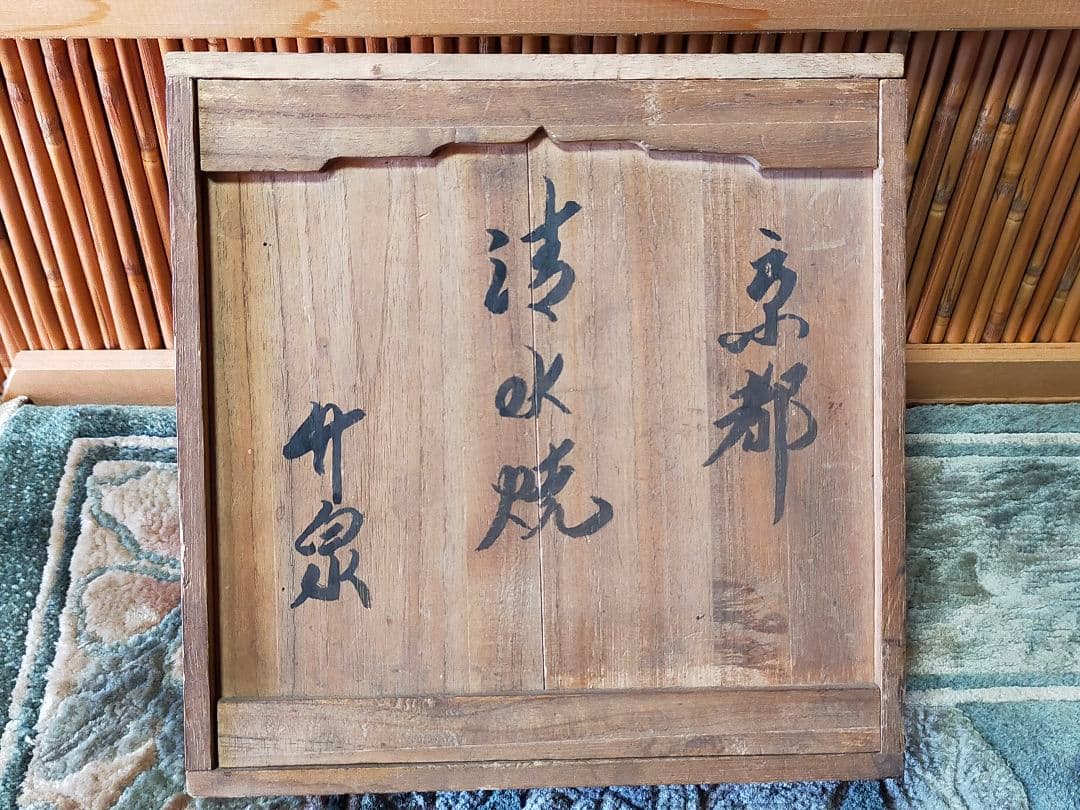 京都
清水焼
竹泉